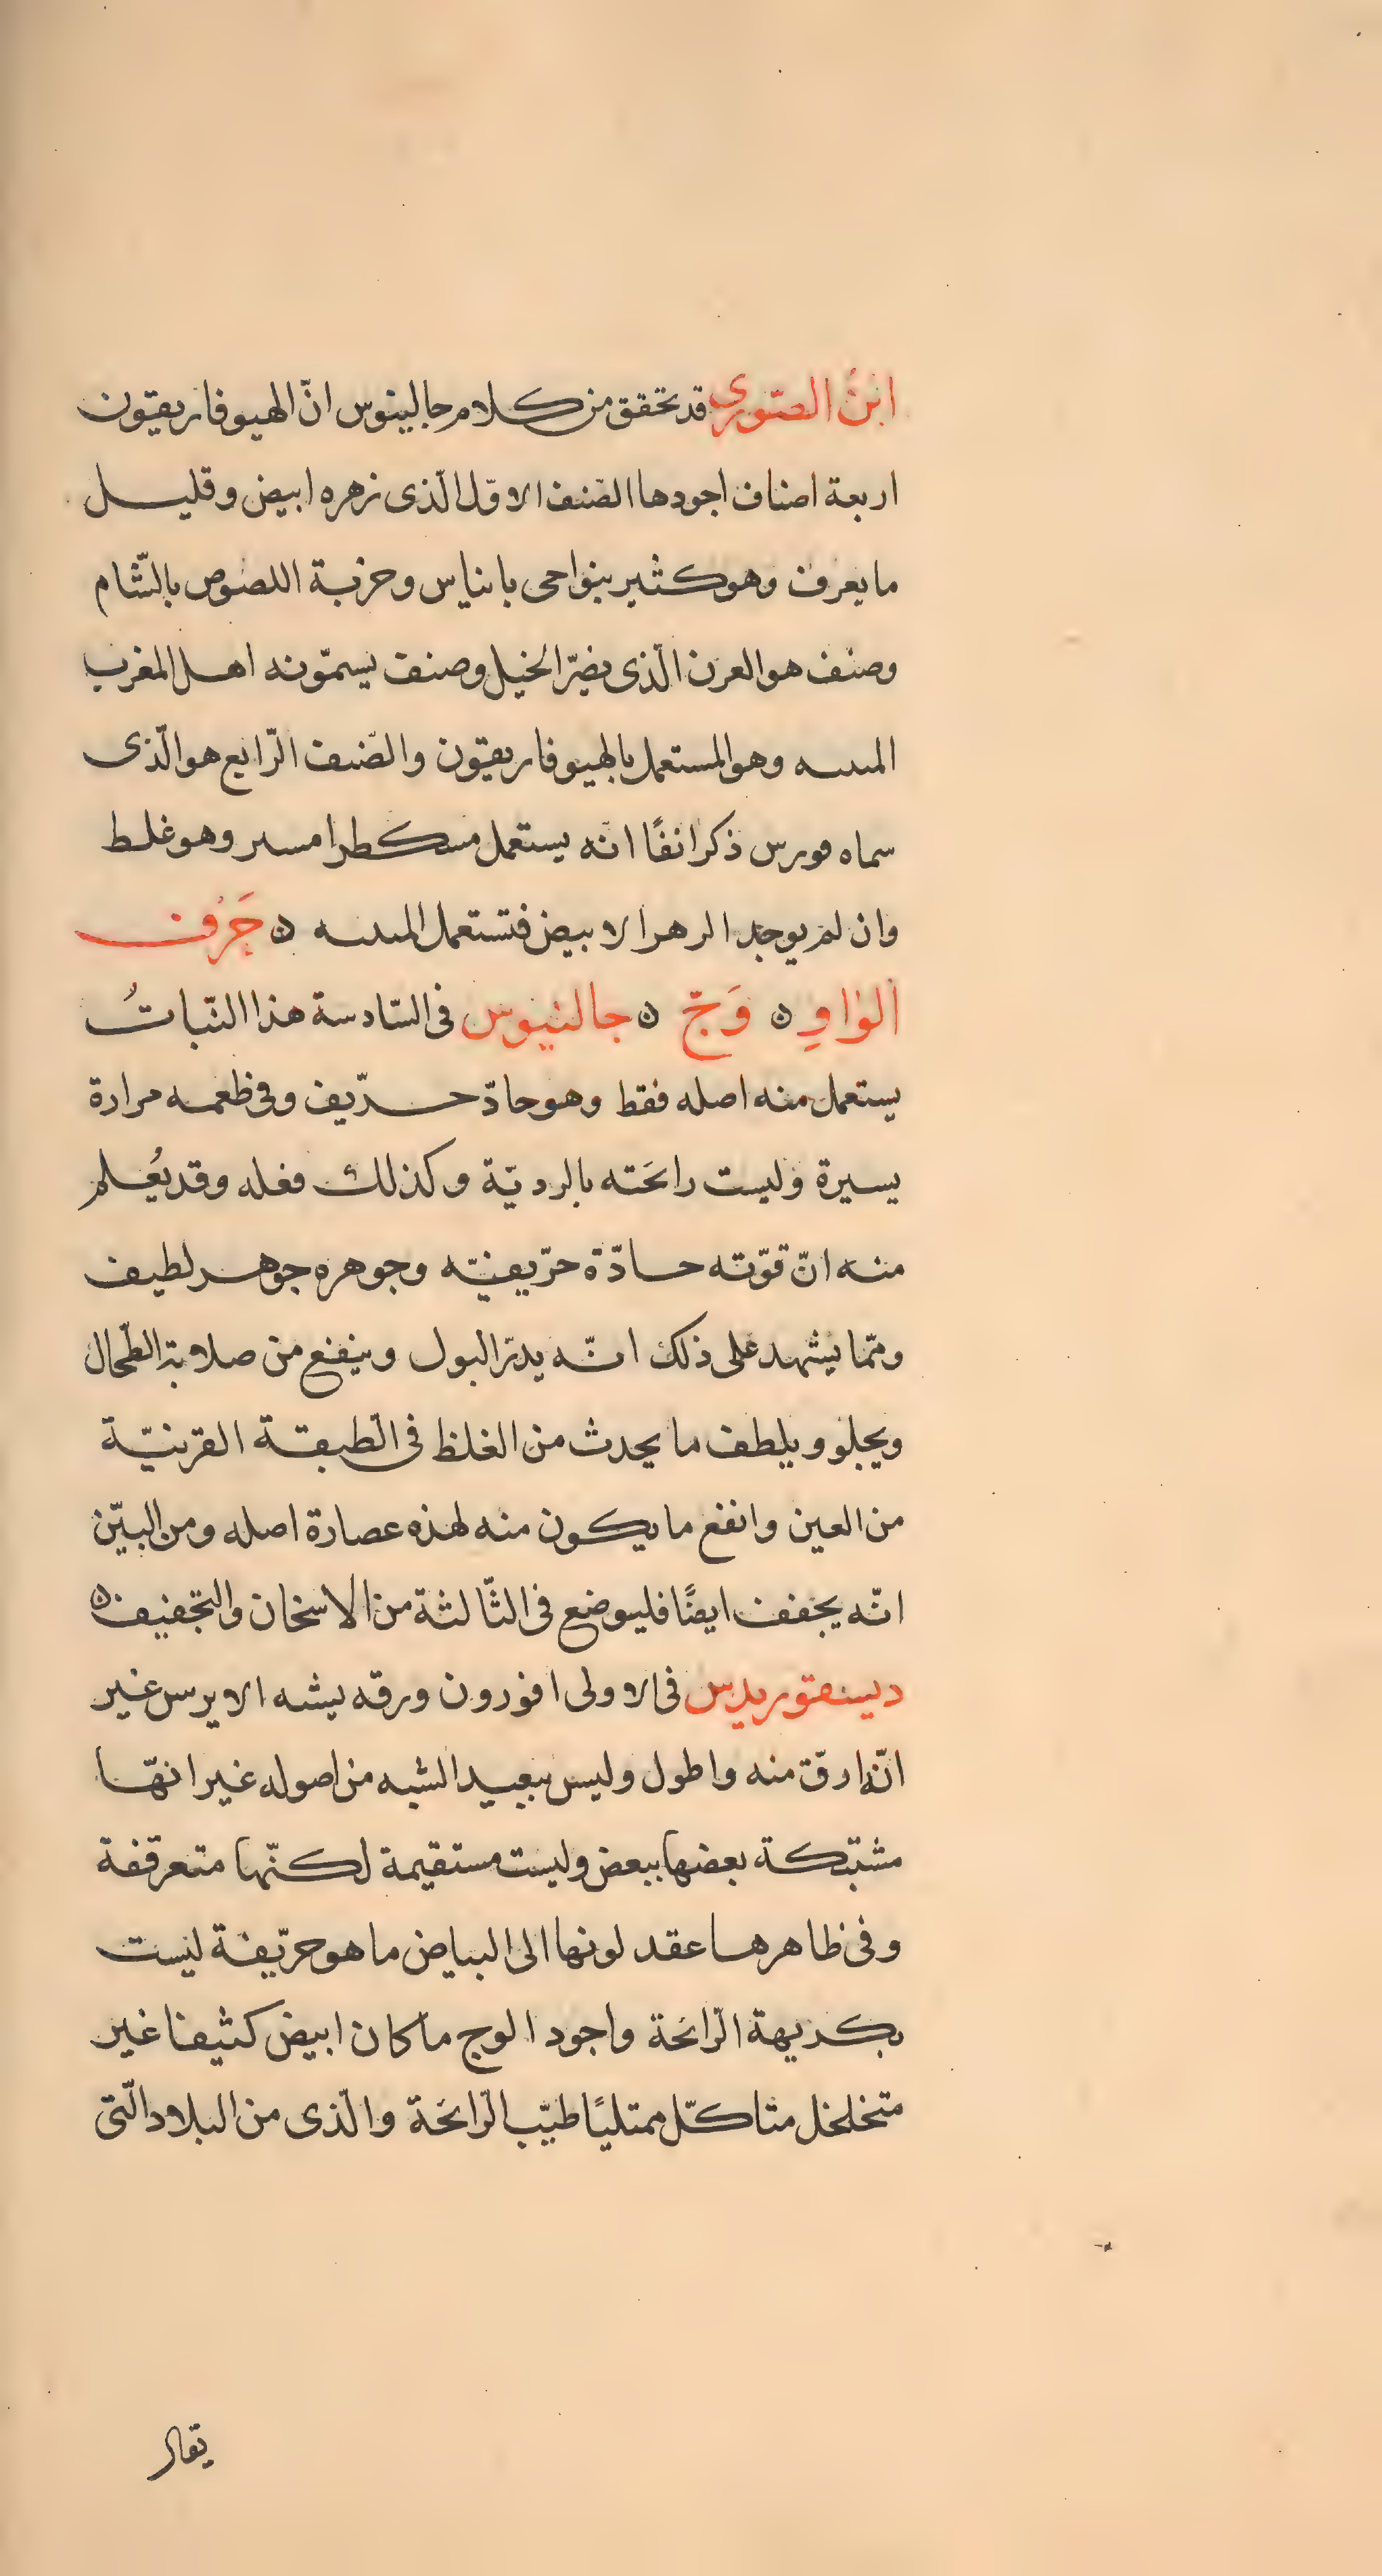 ابنُ الصّوري قد تحقق من كلام جالينوس انّ الهيوفاريقون
اربعة اصناف اجودها الصّنف الاوّل الّذى زهره ابيض وقليل
ما يعرف وهو كثير بنواحى بانياس وخربة اللصوص بالشّام
وصنف هو العرن الّذى يضرّ الخيل وصنف يسمّونه اهل المغرب
وهو المستعمل بالهيوفاريقون والصّنف الرّابع هو الّذى
سماه ذكر انفًا انه يستعمل وهو غلط
وان لم يوجد الزهر الابيض فتستعمل ن حَرْف
الواوِ ن وَجّ ن جالنيوس فى السّادسة هذا النّباتُ
يستعمل منه اصله فقط وهو حادّ حرّيف وفى طعمه مرارة
يسيرة وليست رائحته بالرديّة وكذلك فعله وقد يُعلم
منه انّ قوّته حادّة حرّيفيّه وجوهره جوهر لطيف
وممّا يشهد على ذلك انّه يدرّ البول وينفع من صلابة الطّحال
ويجلو ويلطف ما يحدث من الغلظ فى الطبقة القرنيّة
من العين وانفع ما يكون منه لهذه عصارة اصله ومن البيّن
انّه يجفف ايضًا فليوضع فى الثّالثة من الاسخان والتجفيف ن
ديسقوريدس فى الاولى افورون ورقه يشبه الايرس غير
انّه ارقّ منه واطول وليس ببعيد الشبه من اصوله غير انهّا
مشتبكة بعضها ببعض وليست مستقيمة لكنّها متعرقفة
وفى ظاهرها عقد لونها الى البياض ما هو حرّيفة ليست
بكريهة الرّائحة واجود الوج ما كان ابيض كثيفا غير
متخلخل متاكّل ممتليًا طيّب الرّائحة والّذى من البلاد الّتى
يقال